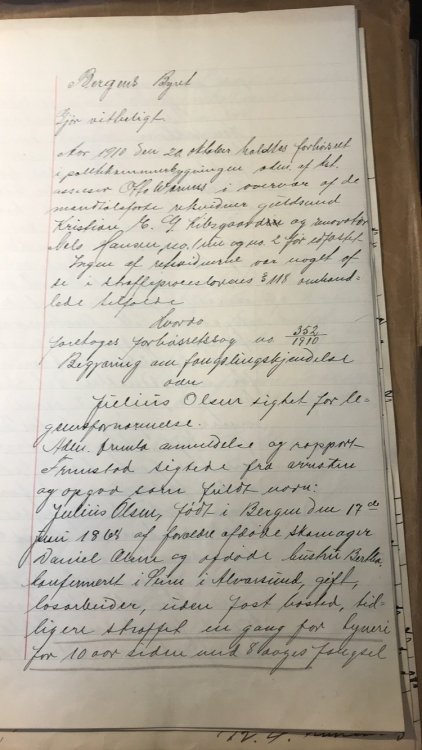 Bergens Byret
Gjør vitterligt
Aar 1910 den 20 oktober holdtes forhørsret
i politikammerbygningen adm. af
assessor Otto i overvær af de
mandtalsførte retsvidner
Kristian E. G. og
Nels Hansen, no. 1 og no. 2 før edfæstet
Ingen af retsvidnerne var noget af
de i straffeprocesloven § 118 omhand-
lede tilfælde
Hvorda
foretoges forhørsretssag no 352/1910
Begjæring om fængslingskjendelse
over
Julius Olsen sigtet for le-
gemsfornærmelse.
Adm. anmeldelse og rapport
Fremstod sigtede fra arresten
og opgav som fuldt navn:
Julius Olsen, født i Bergen den 17de
juni 1868 af forældre afdøde skomager
Daniel Olsen og afdøde hustru Bertha,
konfirmeret i Seim i Alversund, gift,
løsarbeider, uden fast bosted, tid-
ligere straffet en gang for tyveri
for 10 aar siden med 8 dages fængsel